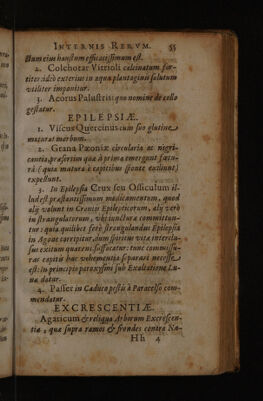 INTERNIS RERVM. 55
ſtum eius hauſtum efficaciſſimum eſt.
2. Colchotar Vitrioli calcinatum for-
titer ideo exterius in aqua plantaginis ſolutum
vtiliter imponitur.
3. Acorus Paluſtris: quo nomine de collo
geſtatur.
EPILEPSIÆ.
1. Viſcus Quercinus cum ſuo glutine
maturat morbum.
2. Grana Pæoniæ circularia ac nigri-
cantia, præſertim quæ à prima emergunt fœtu-
râ (quia matura è capitibus ſponte exiliunt)
expellunt.
3. In Epilepſia Crux ſeu Officulum il-
lud eſt præſtantiſſimum medicamentum, quod
alij volunt in Cranijs Epilepticorum, alij verò
in ſtrangulatorum, vbi iunctura committun-
tur: quia quilibet ferè ſtrangulandus Epilepſia
in Agone corripitur, dum ſpiritus vita interclu-
ſus exitum quærens, ſuffocatur: tunc commiſſu-
ras capitis hac vehementia ſeparari neceſſe
eſt: in principio paroxyſmi ſub Exaltatione Lu-
næ datur.
4. Paſſer in Caduco peſtis à Paracelſo com-
mendatur.
EXCRESCENTIÆ.
Agaricum & reliqua Arborum Excreſcen-
tia, quæ ſupra ramos & frondes contra Na-
Hh 4